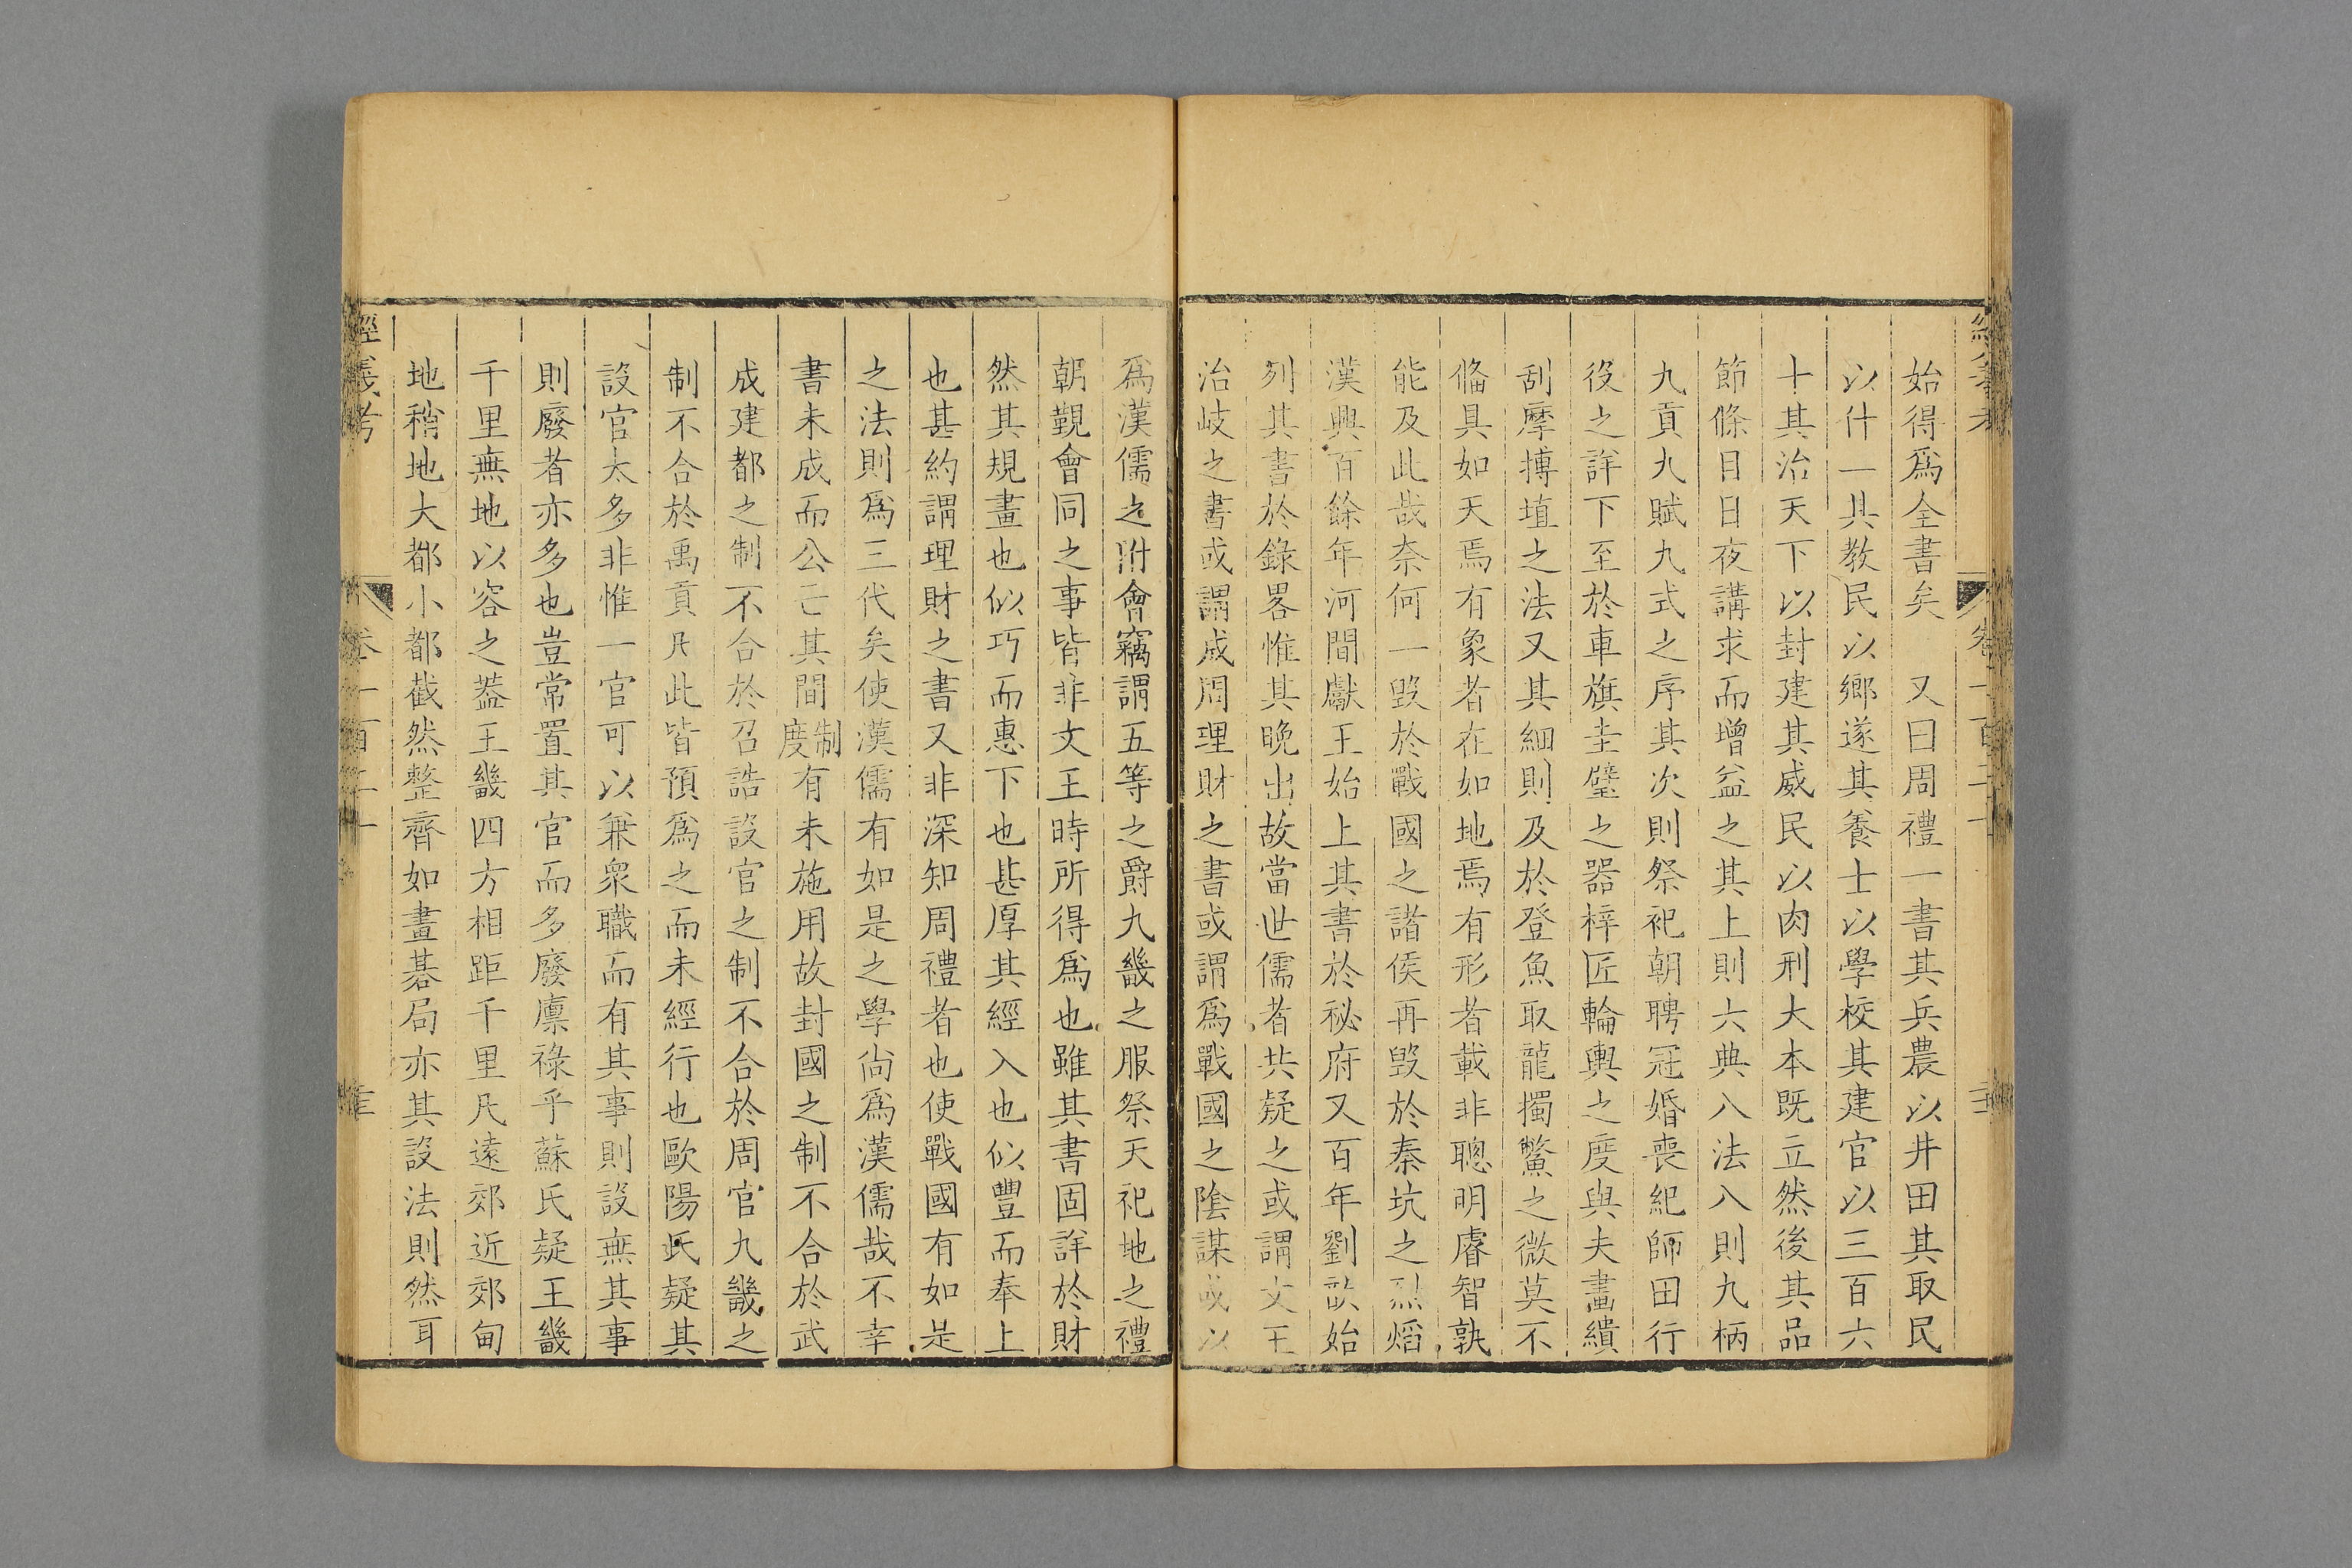 始得爲全書矣　又曰周禮一書其兵農以井田其取民
以什一其教民以鄉遂其養士以學校其建官以三百六
十其治天下以封建其威民以肉刑大本既立然後其品
節條目日夜講求而增益之其上則六典八法八則九柄
九貢九賦九式之序其次則祭祀朝聘冠婚喪紀師田行
役之詳下至於車旗圭璧之器梓匠輪輿之度與夫畫繢
刮摩搏埴之法又其細則及於登魚取龍擉鱉之微莫不
偹具如天焉有象者在如地焉有形者載非聰明睿智孰
能及此哉柰何一毀於戰國之諸侯再毀於秦坑之烈熖
漢興百餘年河間獻王始上其書於祕府又百年劉歆始
列其書於錄畧惟其晚出故當世儒者共疑之或謂文王
治岐之書或謂成周理財之書或謂爲戰國之陰謀或以
爲漢儒之附會竊謂五等之爵九畿之服祭天祀地之禮
朝覲會同之事皆非文王時所得爲也雖其書固詳於財
然其規畫也似巧而惠下也甚厚其經入也似豐而奉上
也甚約謂理財之書又非深知周禮者也使戰國有如是
之法則爲三代矣使漢儒有如是之學尚爲漢儒哉不幸
書未成而公亡其間制度有未施用故封國之制不合於武
成建都之制不合於召誥設官之制不合於周官九畿之
制不合於禹貢凡此皆預爲之而未經行也歐陽氏疑其
設官太多非惟一官可以兼衆職而有其事則設無其事
則廢者亦多也豈常置其官而多廢廪祿乎蘇氏疑王畿
千里無地以容之葢王畿四方相距千里凡遠郊近郊甸
地稍地大都小都截然整齊如畫棊局亦其設法則然耳
經義考
卷一百二十